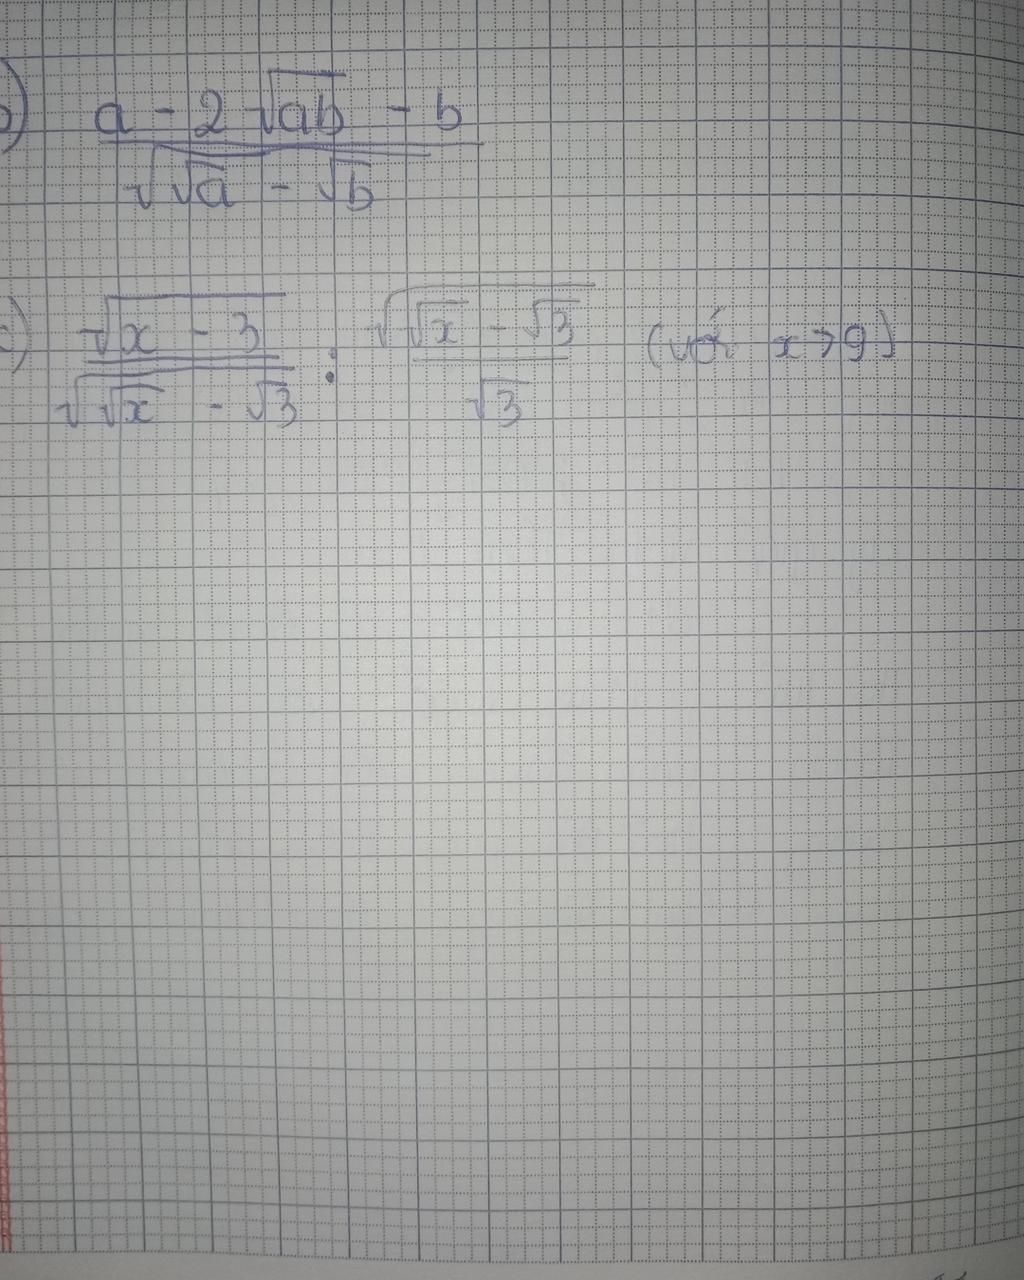 b) (a - 2√(ab) - b) / √(√a - √b)
c) √(x - 3) / √(√x - √3) : √(√x - √3) / √3 (với x > 9)